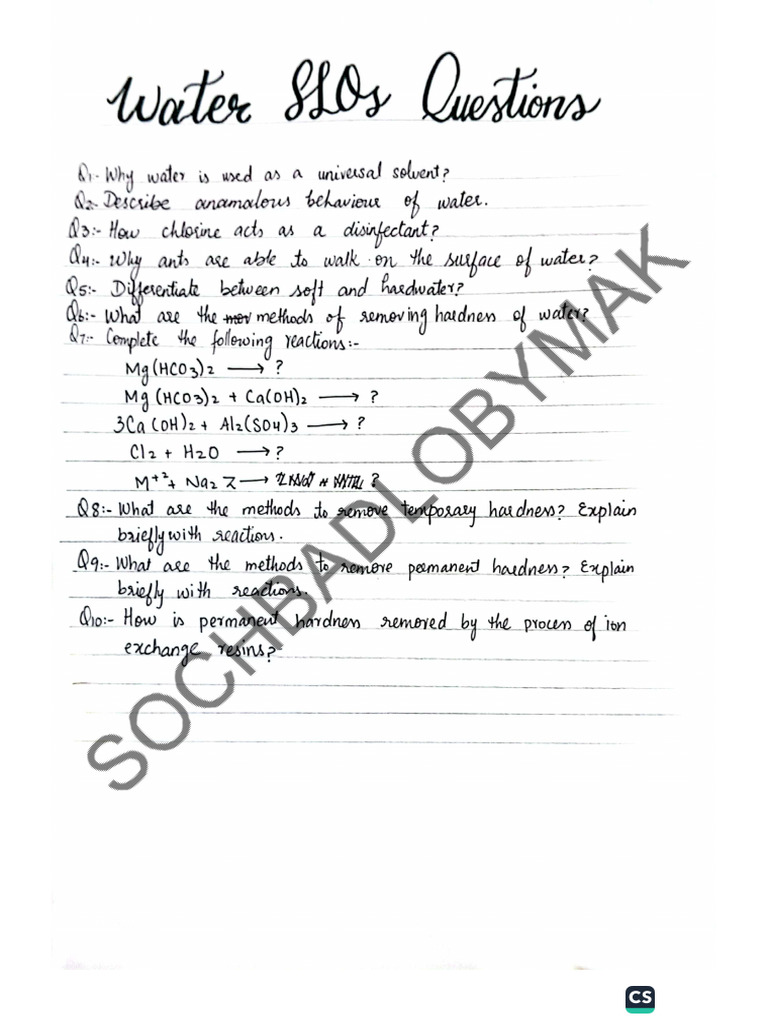 Water SLOs Questions
Q1:- Why water is used as a universal solvent?
Q2:- Describe anamalous behaviour of water.
Q3:- How chlorine acts as a disinfectant?
Q4:- Why ants are able to walk on the surface of water?
Q5:- Differentiate between soft and hardwater?
Q6:- What are the methods of removing hardness of water?
Q7:- Complete the following reactions:-
Mg(HCO3)2 ⟶ ?
Mg(HCO3)2 + Ca(OH)2 ⟶ ?
3Ca(OH)2 + Al2(SO4)3 ⟶ ?
Cl2 + H2O ⟶ ?
M+2 + Na2 Z ⟶ ?
Q8:- What are the methods to remove temporary hardness? Explain
briefly with reactions.
Q9:- What are the methods to remove permanent hardness? Explain
briefly with reactions.
Q10:- How is permanent hardness removed by the process of ion
exchange resins?
SOCHBADLOBYMAK
CS